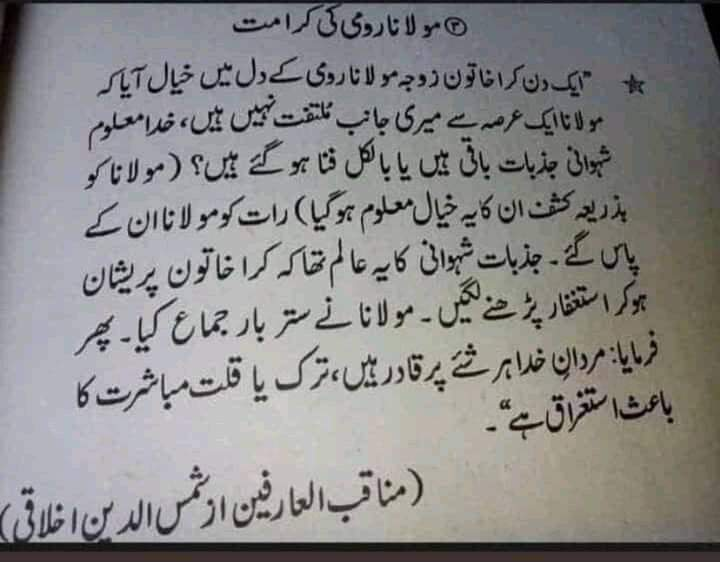 ③ مولانا رومی کی کرامت
★ "ایک دن کرا خاتون زوجہ مولانا رومی کے دل میں خیال آیا کہ
مولانا ایک عرصہ سے میری جانب مُلتفت نہیں ہیں، خدا معلوم
شہوانی جذبات باقی ہیں یا بالکل فنا ہو گئے ہیں؟ (مولانا کو
بذریعہ کشف ان کا یہ خیال معلوم ہو گیا) رات کو مولانا ان کے
پاس گئے۔ جذبات شہوانی کا یہ عالم تھا کہ کرا خاتون پریشان
ہو کر استغفار پڑھنے لگیں۔ مولانا نے ستر بار جماع کیا۔ پھر
فرمایا: مردانِ خدا ہر شئے پر قادر ہیں، ترک یا قلت مباشرت کا
باعث استغراق ہے"۔
(مناقب العارفین از شمس الدین اخلاقی)